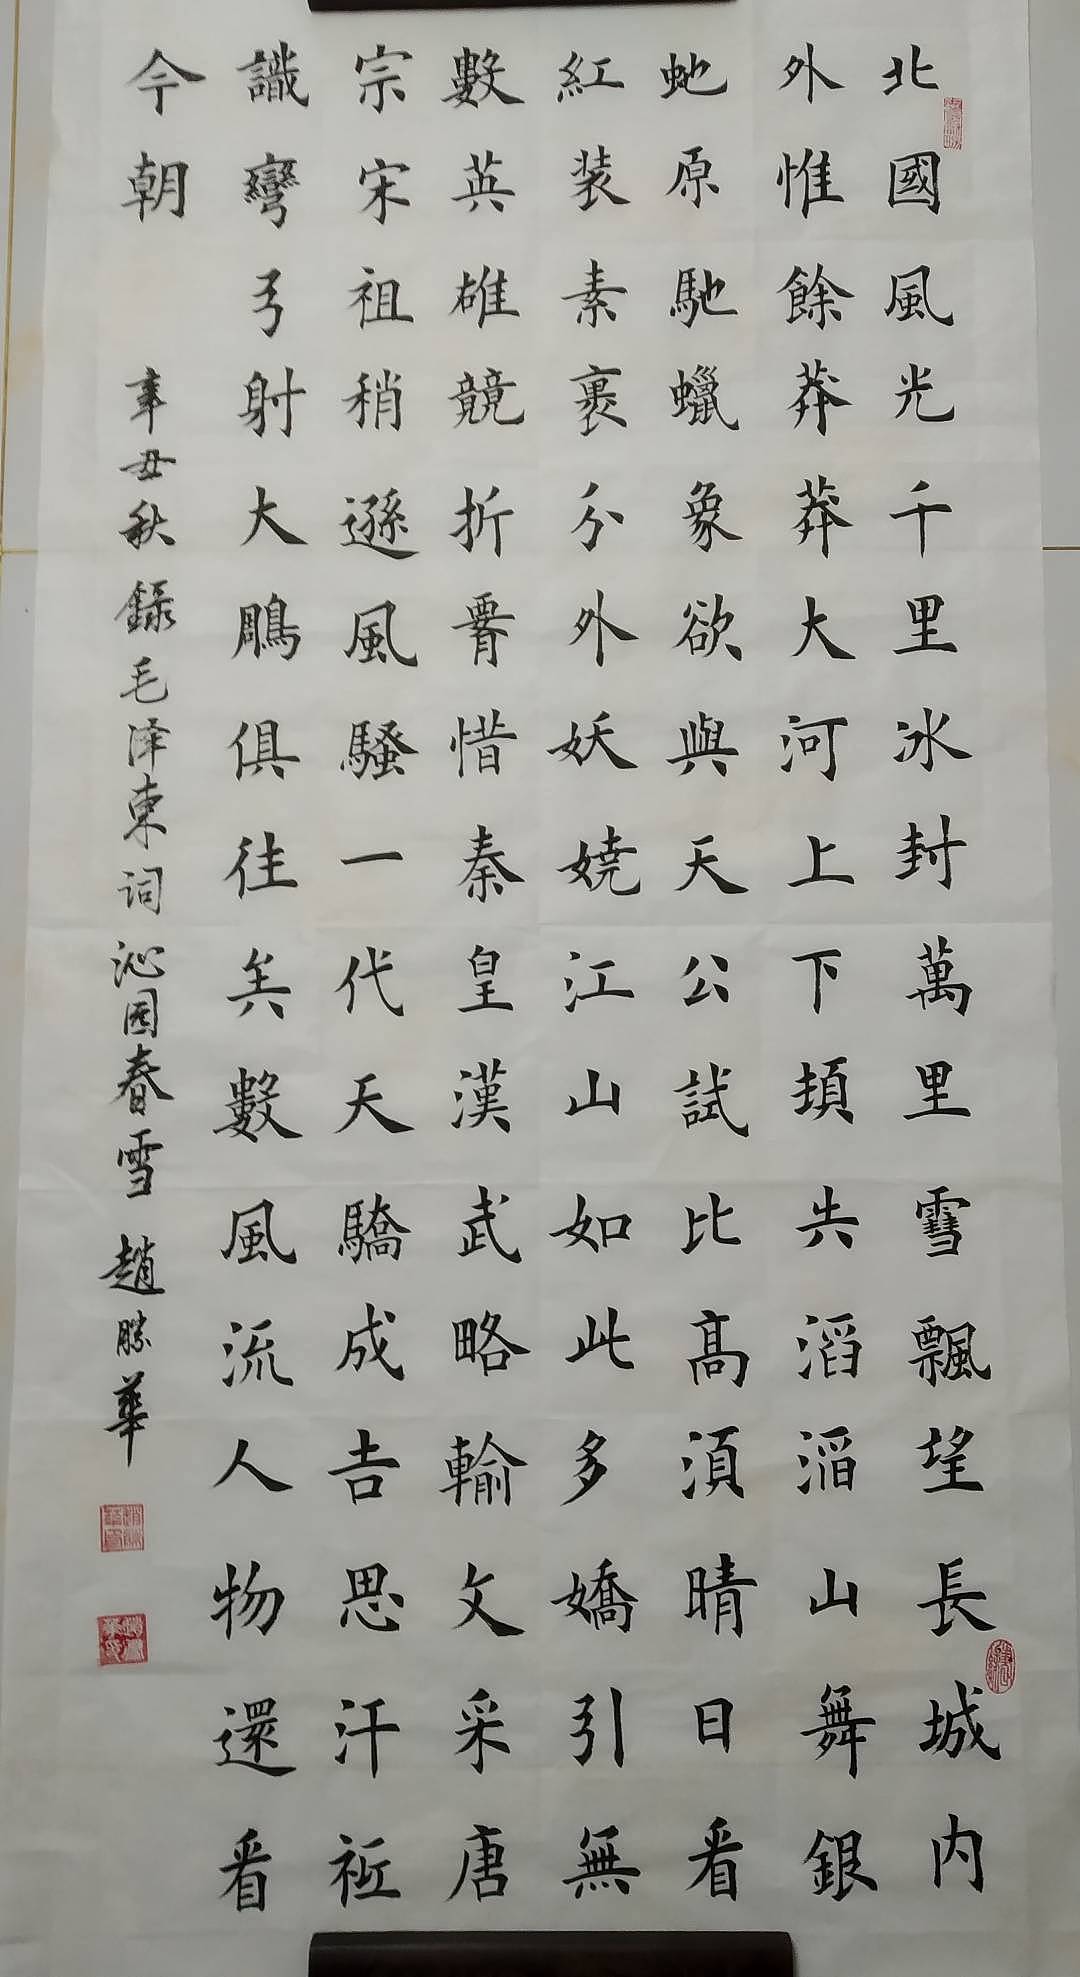 北國風光千里冰封萬里雪飄望長城内
外惟餘莽莽大河上下頓失滔滔山舞銀
虵原馳蠟象欲與天公試比高須晴日看
紅装素裹分外妖嬈江山如此多嬌引無
數英雄競折腰惜秦皇漢武略輸文采唐
宗宋祖稍遜風騷一代天驕成吉思汗衹
識彎弓射大鵰俱往矣數風流人物還看
今朝
辛丑秋錄毛泽東词沁园春雪趙勝華